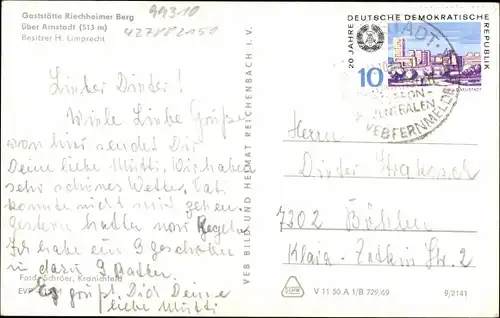 Gaststätte Riechheimer Berg
über Arnstadt (513 m)
Besitzer H. Limprecht
99310
427782150
Lieber Dieter!
Viele Liebe Grüße
von hier sendet Dir
Deine liebe Mutti. Wir haben
sehr schönes Wetter. Vati
konnte nicht mit gehen.
Gestern hatten wir Kegeln
Ich habe ein 9 geschoben
in dazu 9 Ratten.
Es grüßt Dich Deine
liebe Mutti
Foto: Schröer, Kranichfeld
EVP
VEB BILD UND HEIMAT REICHENBACH I. V.
20 JAHRE DEUTSCHE DEMOKRATISCHE REPUBLIK
10
NEUSTADT
STADT
ZENTRALEN
VEB FERNMELDE
Herrn
Dieter
7302 Böhlen
Klara-Zetkin Str. 2
V 11 50 A 1/B 729/69
9/2141